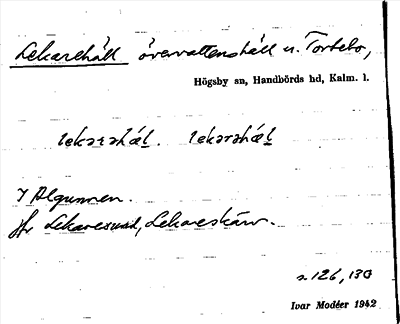 Lekarehäll övervattenshäll u. Tortebo,
Högsby sn, Handbörds hd, Kalm. l.
lekarəhæl. lekarəhæl
I Algunnen.
Jfr Lekaresund, Lekareskär.
s. 126, 130
Ivar Modéer 1942